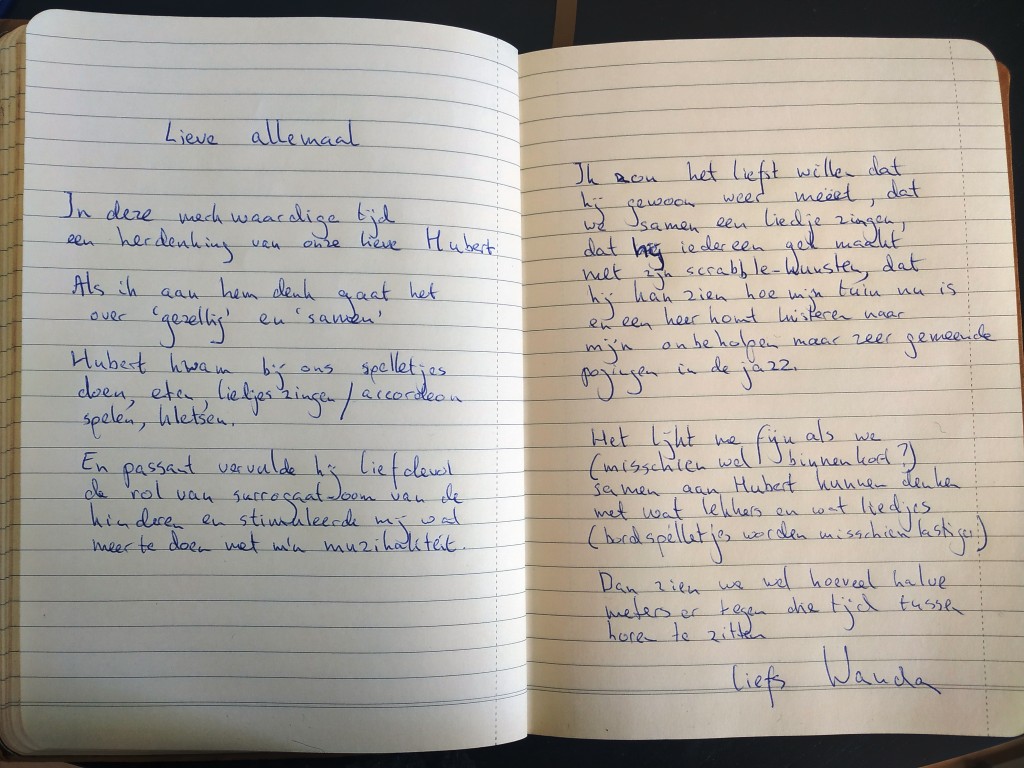 Lieve allemaal
In deze merkwaardige tijd
een herdenking van onze lieve Hubert
Als ik aan hem denk gaat het
over 'gezellig' en 'samen'
Hubert kwam bij ons spelletjes
doen, eten, liedjes zingen / accordeon
spelen, kletsen.
En passant vervulde hij liefdevol
de rol van surrogaat-oom van de
kinderen en stimuleerde mij wat
meer te doen met m'n muzikaliteit.
Ik zou het liefst willen dat
hij gewoon weer meeëet, dat
we samen een liedje zingen,
dat hij iedereen gek maakt
met zijn scrabble-kunsten, dat
hij kan zien hoe mijn tuin nu is
en een keer komt luisteren naar
mijn onbeholpen maar zeer gemeende
pogingen in de jazz.
Het lijkt me fijn als we
(misschien wel binnenkort?)
samen aan Hubert kunnen denken
met wat lekkers en wat liedjes
(bordspelletjes worden misschien lastiger)
Dan zien we wel hoeveel halve
meters er tegen die tijd tussen
horen te zitten
liefs Wanda